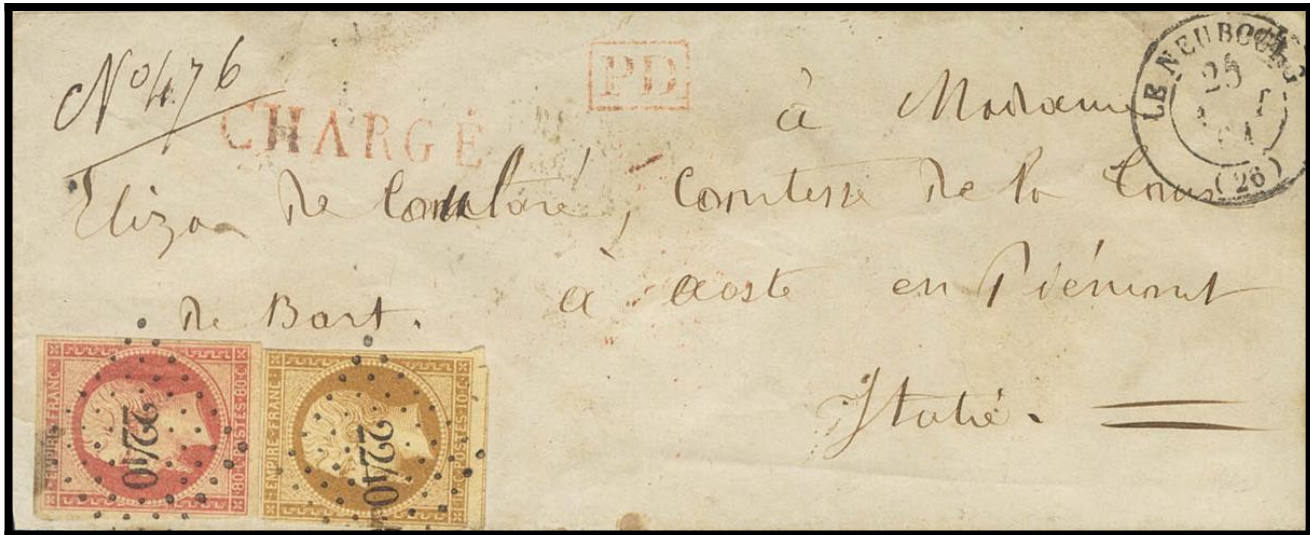 Nº 476
CHARGÉ
PD
LE NEUBOURG
25
(26)
à Madame
Eliza de , Comtesse de la
de Bart.
à Aoste en Piémont
Italie.
EMPIRE FRANC.
80 C. POSTES 80 C.
2240
EMPIRE FRANC.
10 C. POSTES 10 C.
2240